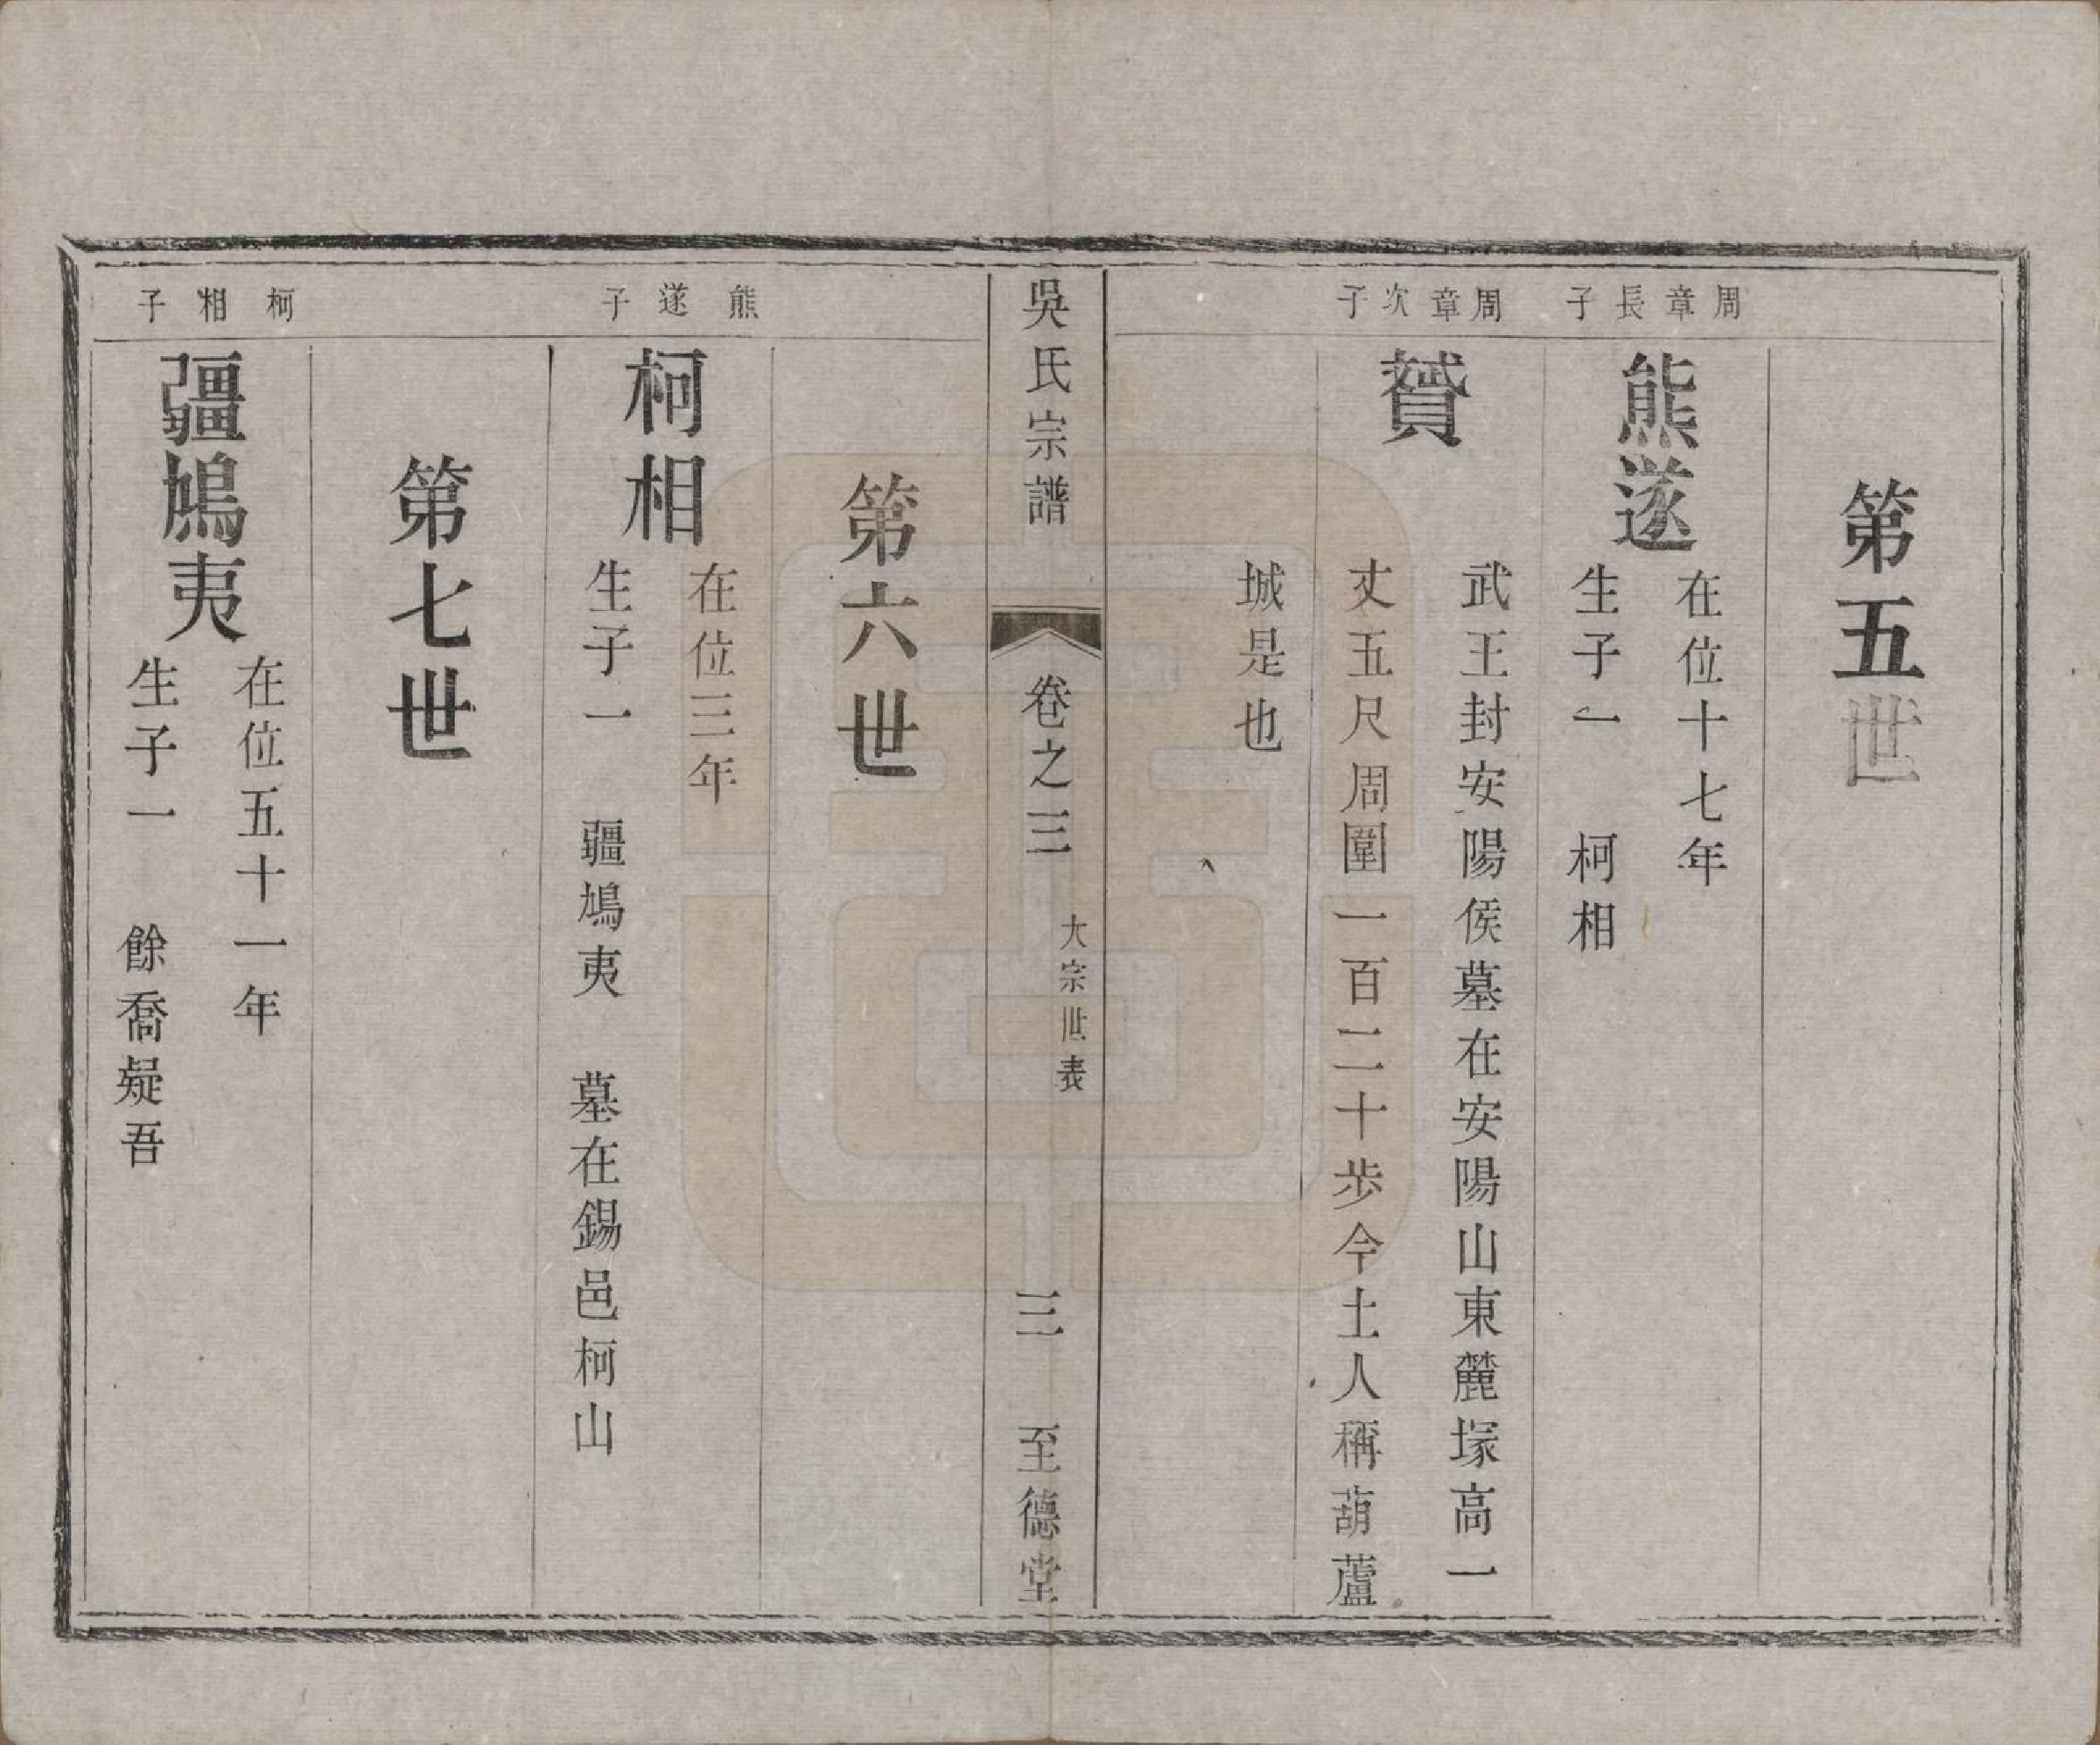 第五世
周章長子
熊遂
在位十七年
生子一　柯相
周章次子
贇
武王封安陽侯墓在安陽山東麓塚高一
丈五尺周圍一百二十步今土人稱葫蘆
城是也
吳氏宗譜　卷之三　大宗世表　三　至德堂
第六世
熊遂子
柯相
在位三年
生子一　疆鳩夷　墓在錫邑柯山
第七世
柯相子
疆鳩夷
在位五十一年
生子一　餘喬疑吾